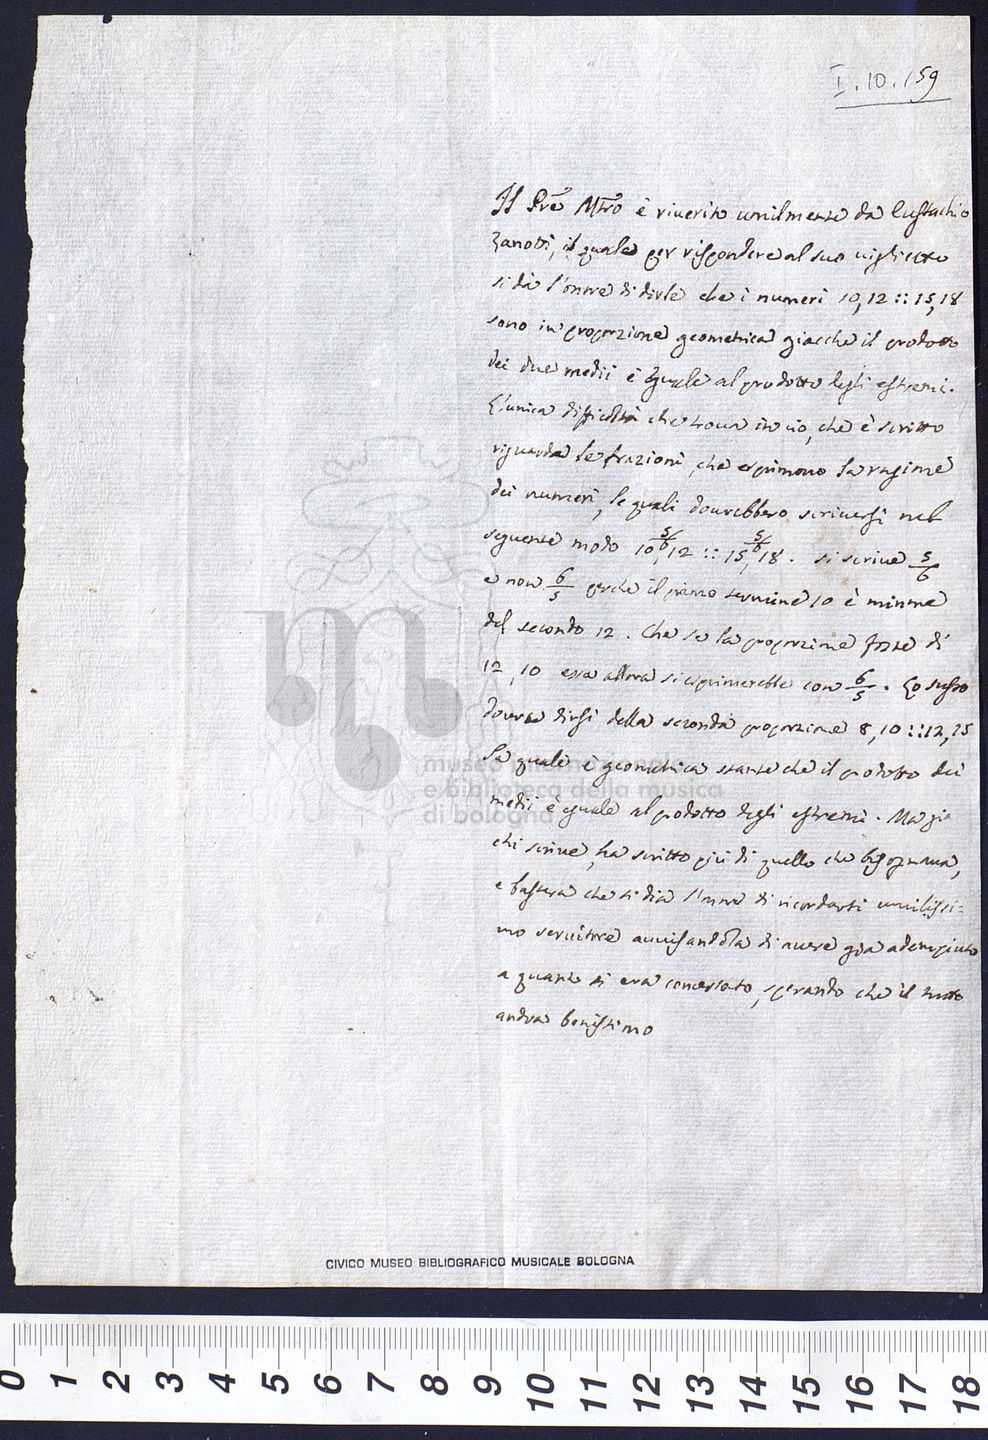 I.10.159
Il Pre Mtro è riverito umilmente da Eustachio
Zanotti, il quale per rispondere al suo viglietto
si dà l'onore di dirle che i numeri 10,12 :: 15,18
sono in proporzione geometrica giacche il prodotto
dei due medii è eguale al prodotto degli estremi.
L'unica difficoltà che trova in ciò, che è scritto
riguarda le frazioni, che esprimono la ragione
dei numeri, le quali dovrebbero scriversi nel
seguente modo 10 5/6, 12 :: 15 5/6, 18. si scrive 5/6
e non 6/5 perche il primo termine 10 è minore
del secondo 12. Che se la proporzione fosse di
12, 10 essa allora si esprimerebbe con 6/5. Lo stesso
dovrà dirsi della seconda proporzione 8,10 :: 12,15
la quale è geometrica stante che il prodotto dei
medii è eguale al prodotto degli estremi. Ma già
chi scrive, ha scritto più di quello che bisognava,
e basterà che si dia l'onore di ricordarsi umilissi=
mo servitore avvisandola di avere già adempiuto
a quanto si era concertato, sperando che il tutto
andrà benissimo
museo internazionale
e biblioteca della musica
di bologna
CIVICO MUSEO BIBLIOGRAFICO MUSICALE BOLOGNA
0 1 2 3 4 5 6 7 8 9 10 11 12 13 14 15 16 17 18